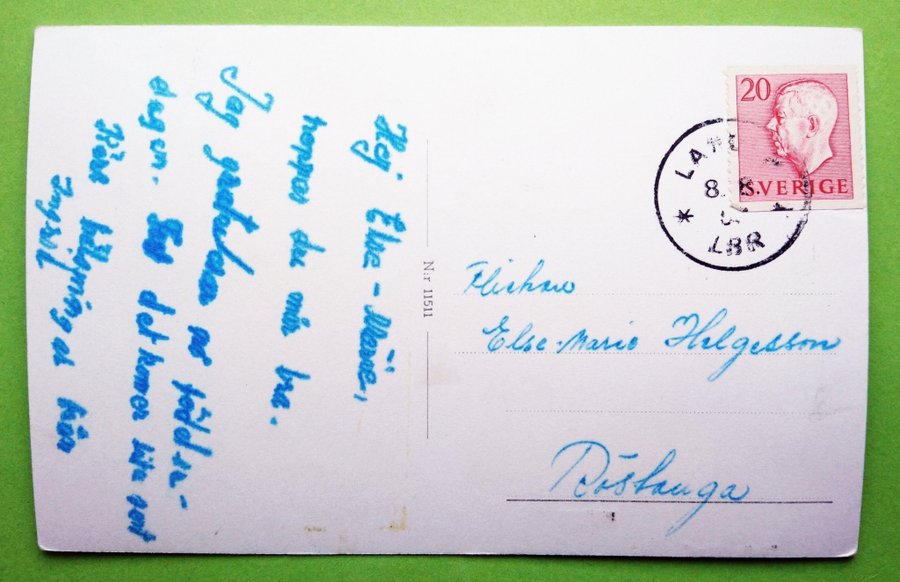 Hej Else-Marie,
hoppas du mår bra.
Jag gratulerar på födelse-
dagen. Fast det kommer lite sent
Kära hälsningar från
Ingrid
N:r 11511
20
SVERIGE
LBR
Fröken
Else-Marie Helgesson
Röstånga